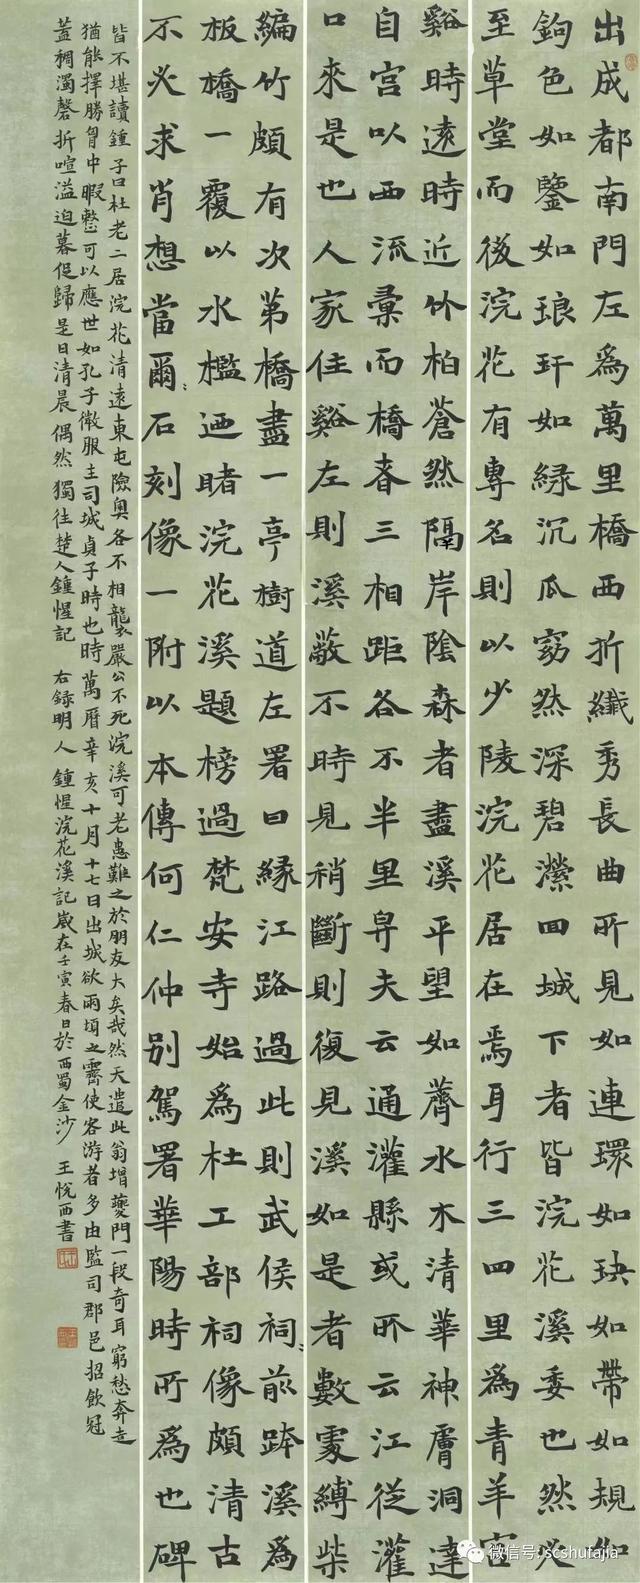 出成都南門左爲萬里橋西折纖秀長曲所見如連環如玦如帶如規如
鉤色如鑒如琅玕如緑沉瓜窈然深碧瀠回城下者皆浣花溪委也然必
至草堂而後浣花有專名則以少陵浣花居在焉耳行三四里為青羊宮
谿時遠時近竹柏蒼然隔岸陰森者盡溪平望如薺水木清華神膚洞達
自宮以西流彙而橋者三相距各不半里舁夫云通灌縣或所云江從灌
口來是也人家住谿左則溪蔽不時見稍斷則復見溪如是者數處縛柴
編竹頗有次第橋盡一亭樹道左署曰緣江路過此則武侯祠〻前跨溪為
板橋一覆以水檻迺睹浣花溪題榜過梵安寺始為杜工部祠像頗清古
不必求肖想當爾〻石刻像一附以本傳何仁仲別駕署華陽時所為也碑
皆不堪讀鍾子曰杜老二居浣花清遠東屯險奧各不相襲嚴公不死浣溪可老患難之於朋友大矣哉然天遣此翁增夔門一段奇耳窮愁奔走
猶能擇勝胷中暇整可以應世如孔子微服主司城貞子時也時萬曆辛亥十月十七日出城欲雨頃之霽使客游者多由監司郡邑招飲冠
蓋稠濁磬折喧溢迫暮促歸是日清晨偶然獨往楚人鍾惺記 右錄明人鍾惺浣花溪記歲在壬寅春日於西蜀金沙 王悅西書
微信号: scshufajia